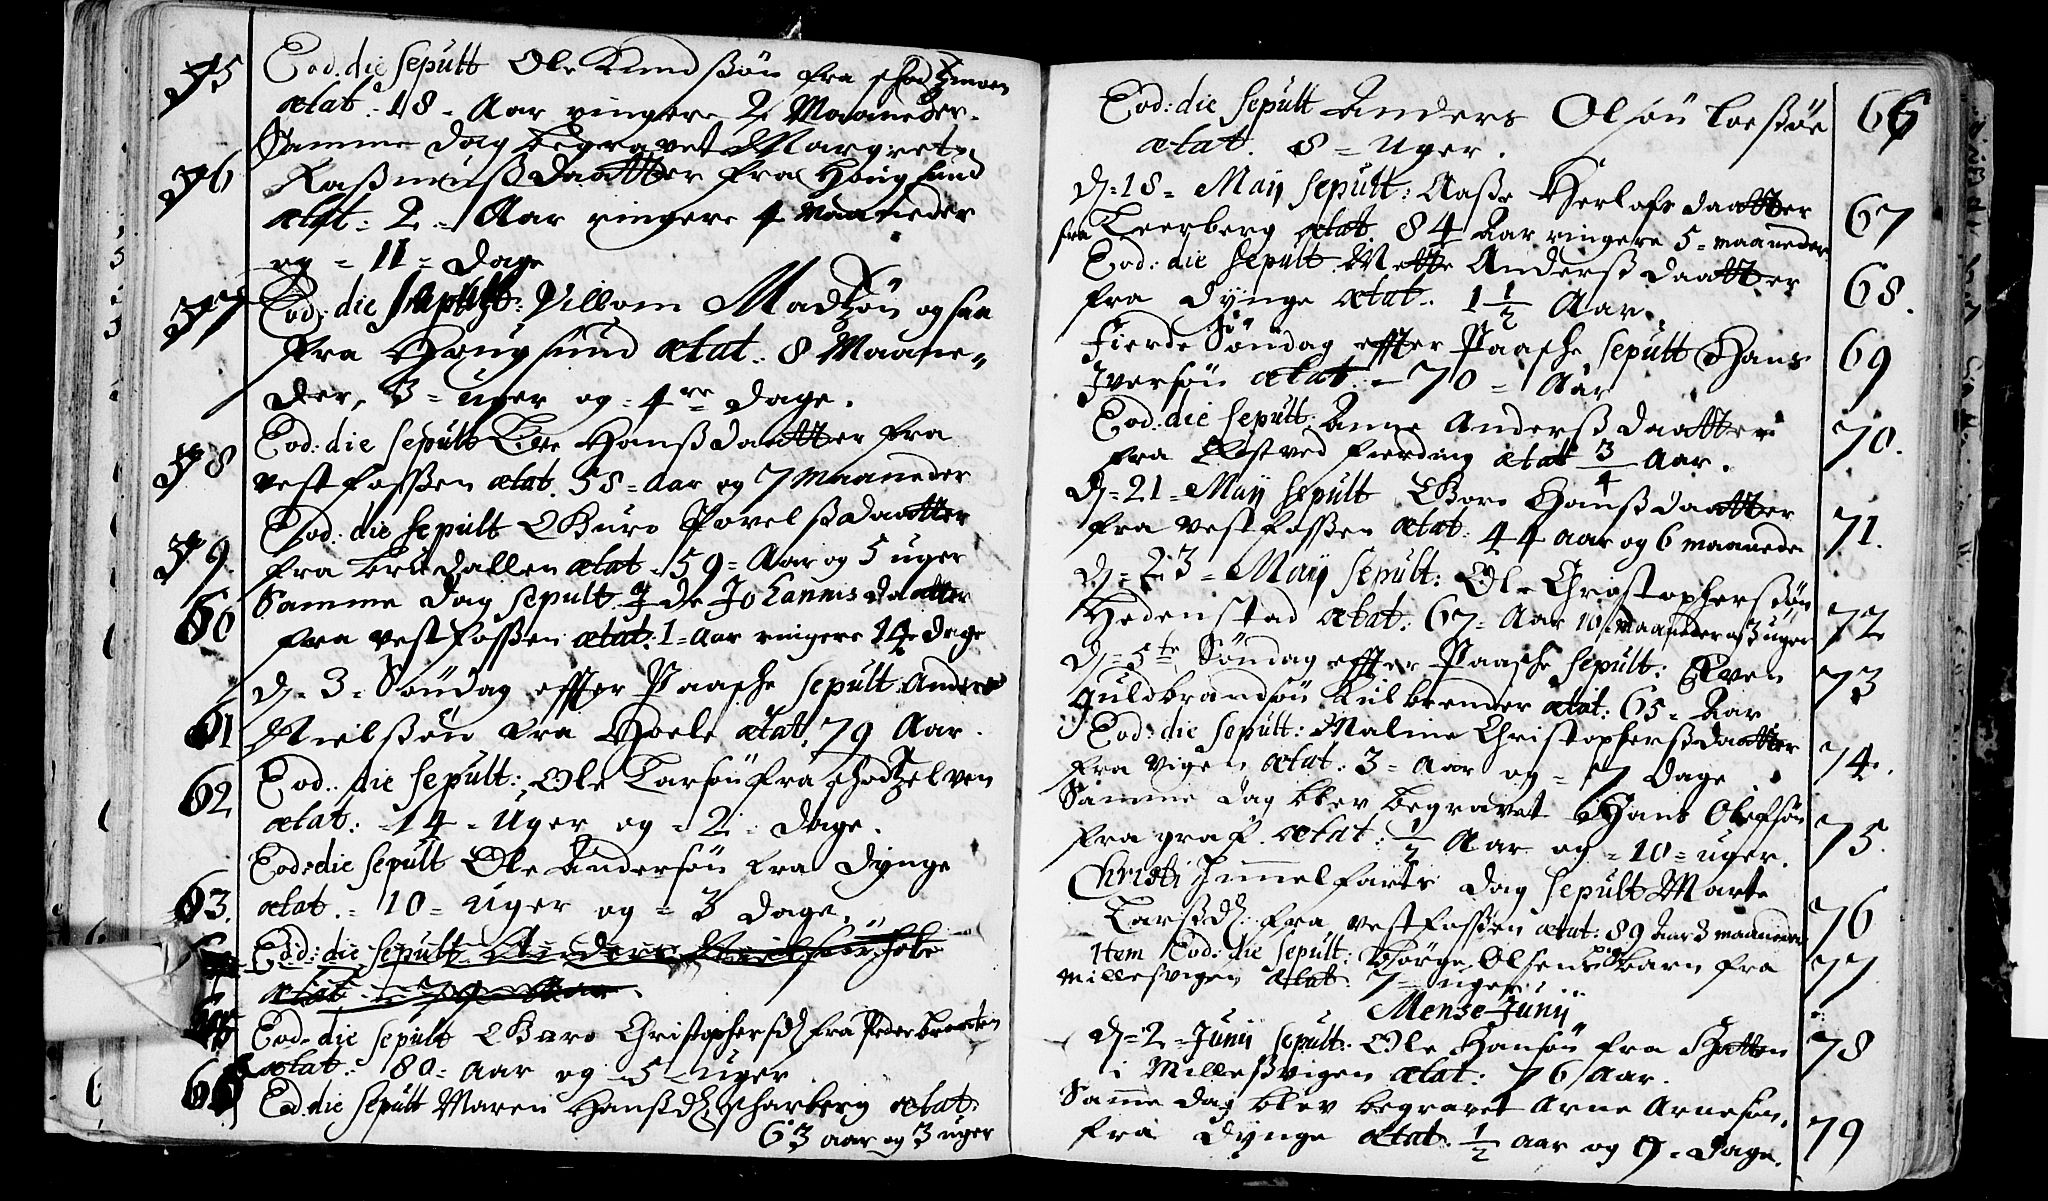 55 Eod: die Sepult Ole Knudssøn fra
ætat: 48 - Aar ringere 2 Maaneder.
Samme Dag begravet Margrete
56 Rassmussdaatter fra Hougsund
ætat: 2 - Aar ringere 4 Maaneder
og = 11 = Dage
57 Eod: die Sepult: Villom Madtzøn og saa
fra Hougsund ætat: 8 Maane-
der, 3 = uger og = 4re Dage.
58 Eod: die Sepult Hanssdaatter fra
vestfossen ætat. 58 = Aar og 7 Maaneder
59. Eod: die Sepult Guro Povelssdaatter
fra ætat = 59 = Aar og 5 uger
60 Samme Dag Sepult Johannisdaatter
fra vestfossen ætat: 1 = Aar ringere 14 Dage
D = 3 = Søndag effter Paasche Sepult: Anders
61 Nielssøn fra Hoele ætat. 79 Aar.
62 Eod: die Sepult: Ole Larsøn fra
ætat: = 14 = Uger og = 2 = Dage.
Eod: die Sepult Ole Andersøn fra Dynge
63. ætat. = 10 = Uger og = 3 Dage.
Eod: die Sepult Anders Nielsøn Hole
ætat = 79 = Aar.
Eod: die Sepult Guro Christophersd. fra Pederbraaten
ætat: 80 = Aar og = 5 = uger
Eod: die Sepult Maren Hanssd. ætat:
63 aar og 3 uger
Eod: die Sepult Anders Olsøn Loessøe 66
ætat. 8 = Uger.
D = 18 = Maij Sepult: Aasse Herlofsdaatter
fra Leerberg ætat 84 Aar ringere 5 = maaneder 67
Eod: die Sepult Mette Anderssdaatter
fra Dynge ætat. 1 1/2 Aar. 68.
Fierde Søndag effter Paasche Sepult Hans 69
Iversøn ætat. = 70 = Aar
Eod: die Sepult: Anne Anderssdaatter
fra fierding ætat 3/4 Aar. 70.
D = 21 = Maij Sepult Goro Hanssdaatter
fra vestfossen ætat: 44 aar og 6 maaneder 71.
D = 23 = Maij Sepult: Ole Christopherssøn
Hedenstad ætat: 67 = Aar 10 = maaneder og 3 uger 72
D = 5te Søndag effter Paasche Sepult: Even 73
Guldbrandsøn Kulbrender ætat: 65 = Aar
Eod: die Sepult: Maline Christopherssdaatter
fra Vigen ætat: 3 = Aar og = 7 Dage 74.
Samme Dag blev begravet Hans Olefsøn
fra graf. ætat: 1/2 Aar og = 10 = uger. 75.
Christi Himmelfarts Dag Sepult Marte
Larssd. fra vestfossen ætat: 89 Aar 3 maaneder 76
Item Eod: die Sepult: Børge Olsens pige Barn fra
Millesvigen Ætat 7 = uger 77
Mense Junij
D = 2 = Junij Sepult: Ole Hansøn fra 78
i Millessvigen ætat: 76 Aar.
Samme Dag blev begravet Arne Arnesøn.
fra Dynge ætat: 1/2 aar og 9 = Dage. 79